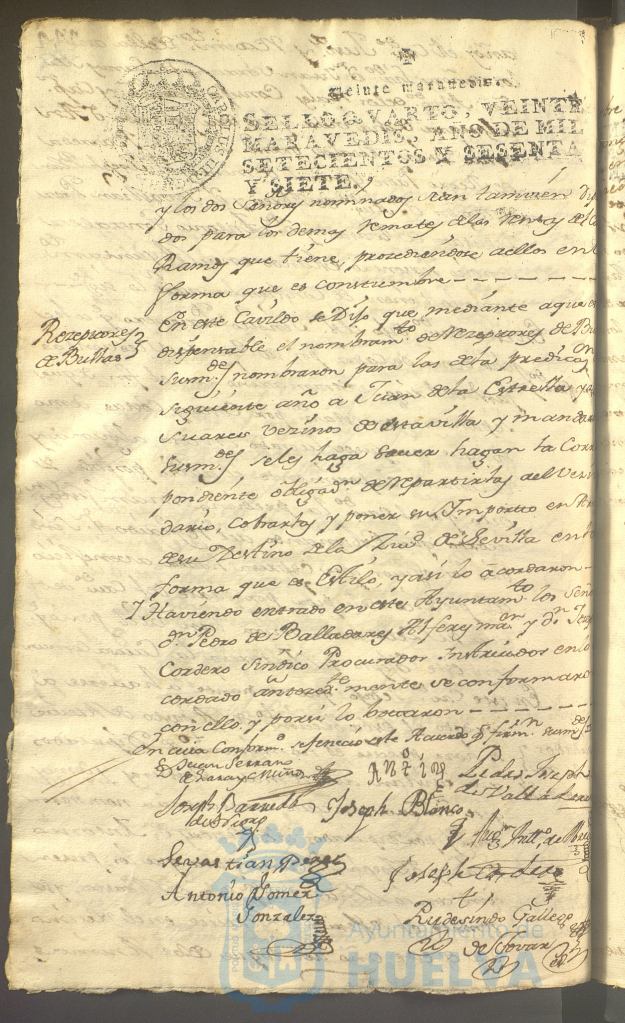 Veinte maravedis.
SELLO QVARTO, VEINTE
MARAVEDIS, AÑO DE MIL
SETECIENTOS Y SESENTA
Y SIETE.
CAROLUS III D G
y los dos Señores nominados sean tamvien
dos para los demas remates de las rentas
Ramos que tiene, prozediendose a ellos en
forma que es constumbre
Rezeptores
de Bullas
En este Cavildo se Dijo que mediante a que
dispensable el nombramto de Rezeptores de
sumdes nombraron para las de la predicaon
siguiente año a Juan de la Estrella y
Suares vezinos de esta villa y mandar
sumdes se les haga saver hagan la Corr
pondiente obligaon de Repartirlas al Vezi
dario, Cobrarlas y poner su Importe en
de su Destino de la Ziud de Sevilla en
forma que es Estilo, y asi lo acordaron
Y Haviendo entrado en este Ayuntamto los Señ
dn Pedro de Balladares Alferez maor y dn
Cordero Sindico Procurador Instruidos en lo
cordado anteredte mente se conformaro
con ello, y por si lo botaron
En cuia Conformd se fenecio este Acuerdo q firmn sumdes
Dn Juan Serrano
Pedro Joseph
de Valladares
Joseph Barreda
Joseph Blanco
Sevastian Perez
Joseph Cordero
Antonio Gomez
Gonzalez
Rudesindo Gallego
de Tovar
Ayuntamiento de
HUELVA